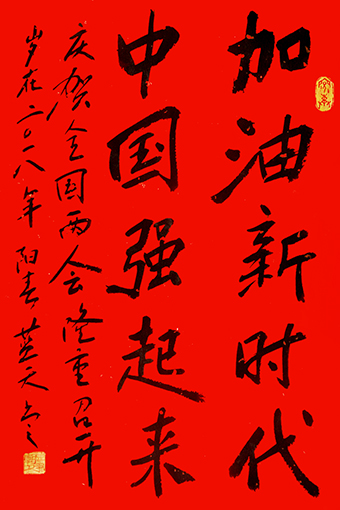 加油新时代
中国强起来
庆贺全国两会隆重召开
岁在二〇一八年阳春蓝天